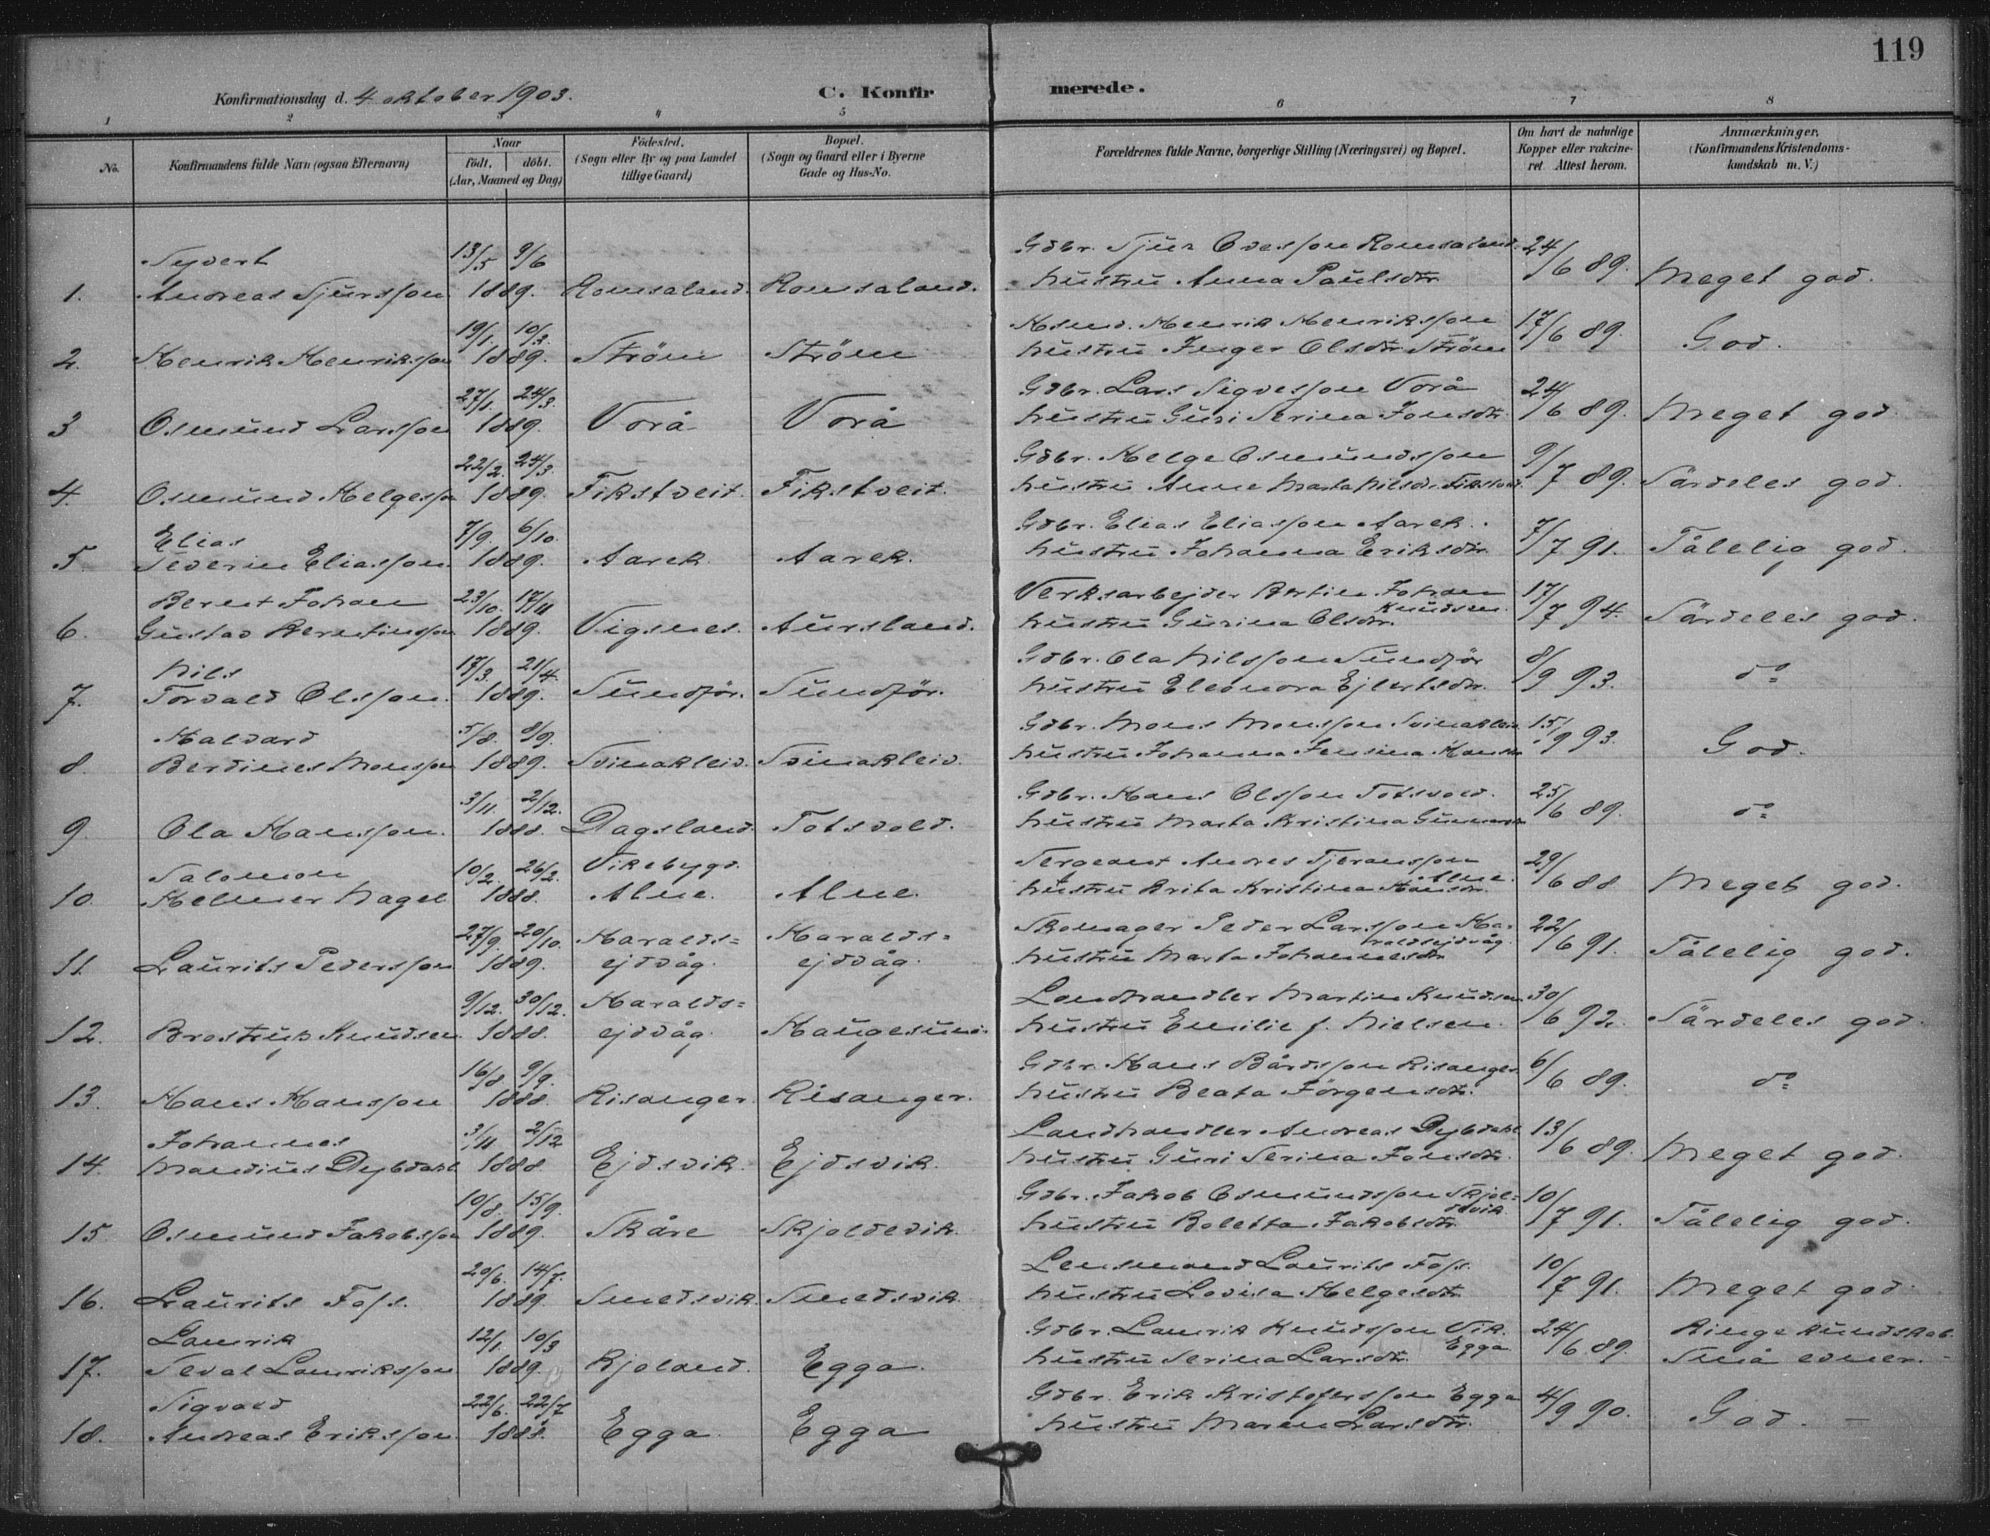 119
Konfirmationsdag d. 4 oktober 1903. C. Konfirmerede.
1 2 3 4 5 6 7 8
No. Konfirmandens fulde Navn (ogsaa Efternavn) Naar födt, döbt. (Aar, Maaned og Dag) Födested. (Sogn eller By og paa Landet tillige Gaard) Bopæl. (Sogn og Gaard eller i Byerne Gade og Hus-No. Forældrenes fulde Navne, borgerlige Stilling (Næringsvei) og Bopæl. Om havt de naturlige Kopper eller vakcineret. Attest herom. Anmærkninger. (Konfirmandens Kristendomskundskab m. V.)
Syvert 13/5 9/6 Gdbr. Sjur Ovesson Romsaland. 24
1. Andreas Sjursson 1889. Romsaland. Romsaland. hustru Anna Paulsdtr /6 89. Meget god.
19/1. 10/3. Henrik Henriksson 17
2. Henrik Henriksson 1889. Ström Ström hustru Inger Olsdtr Ström /6 89. God.
27/1. 24/3. Gdbr. Lars Sigvesson Vorå 24
3 Osmund Larsson 1889. Vorå Vorå hustru Guri Serina Jonsdtr /6 89. Meget god.
22/2. 24/3. Gdbr. Helge Osmundsson 9
4. Osmund Helgesso 1889. Fikstveit. Fikstveit. hustru Anne Marta Nilsdr. /7 89. Särdeles god.
Elias 7/9. 6/10. Gdbr. Elias Eliasson Aarek. 7
5. Severin Eliasson 1889. Aarek. Aarek. hustru Johanna Eriksdtr. /7 91. Tålelig god.
Bernt Johan 23/10. 17/11 Verksarbejder Bertin Johan Knudsen. 17
6. Gustav Berentinsson 1889. Vigsnes. Aursland. hustru Gurina Olsdtr. /7 94. Särdeles god.
Nils 17/3. 21/4. Gdbr. Ola Nilsson Sundför 8
7. Torvald Olsson. 1889. Sundför. Sundför. hustru Eleonora Ejlertsdtr. /9 93. do
Halvard 5/8. 8/9. Gdbr. Mons Monsson Svinakleiv 15
8. Berdines Monsson 1889. Svinakleiv. Svinakleiv. hustru Johanna Jensina Hansdtr /9 93. God.
3/11. 2/12. Gdbr. Hans Olsson Totsvold. 25
9. Ola Hansson. 1888. Dagsland. Totsvold. hustru Marta Kristina /6 89. do
Salomon 10/2. 26/2. Vikebygd Sergeant Andres Tjeransson Alne. 29
10. Helmer Nagel 1888. Alne. Alne. hustru Brita Kristina Hansdr. /6 88 Meget god.
27/9. 20/10. Haralds= Haralds= Skomager Peder Larsson Haraldsejdvåg. 22
11. Laurits Pedersson 1889. ejdvåg. ejdvåg. hustru Marta Johannesdtr /6 91. Tålelig god.
9/12. 30/12. Haralds= Landhandler Martin Knudsen 30
12. Brostrup Knudsen 1888. ejdvåg. Haugesund. hustru Emilie f. Nielsen. /6 92. Särdeles god.
16/8. 9/9. Gdbr. Hans Bårdsson Risanger 6
13. Hans Hansson 1888. Risanger. Risanger. hustru Beata Jörgensdtr. /6 89. do
Johannes 3/11 2/12 Landhandler Andreas Dybdahl 13
14. Mandius Dybdahl 1888. Ejdsvik. Ejdsvik. hustru Guri Serina Jonsdtr. /6 89. Meget god.
10/8. 15/9. Gdbr. Jakob Osmundsson Skjoldevik 10
15 Osmund Jakobsson 1889. Skåre Skjoldevik. hustru Boletta Jakobsdtr. /7 91. Tålelig god.
20/6. 14/7. Lensmand Laurits Foss. 10
16. Laurits Foss. 1889. Smedsvik. Smedsvik. hustru Lovisa Helgesdtr. /7 91. Meget god.
Lamrik 12/1. 10/3 Gdbr. Lamrik Knudsson Vik. Egga 24 Ringe kundskab.
17. Seval Lamriksson 1889. Kjoland. Egga. hustru Serina Larsdtr. /6 89. Små evner.
Sigvald 22/6. 22/7 Gdbr. Erik Kristofersson Egga 4
18. Andreas Eriksson. 1888. Egga. Egga hustru Maren Larsdtr. /9 90. God. –